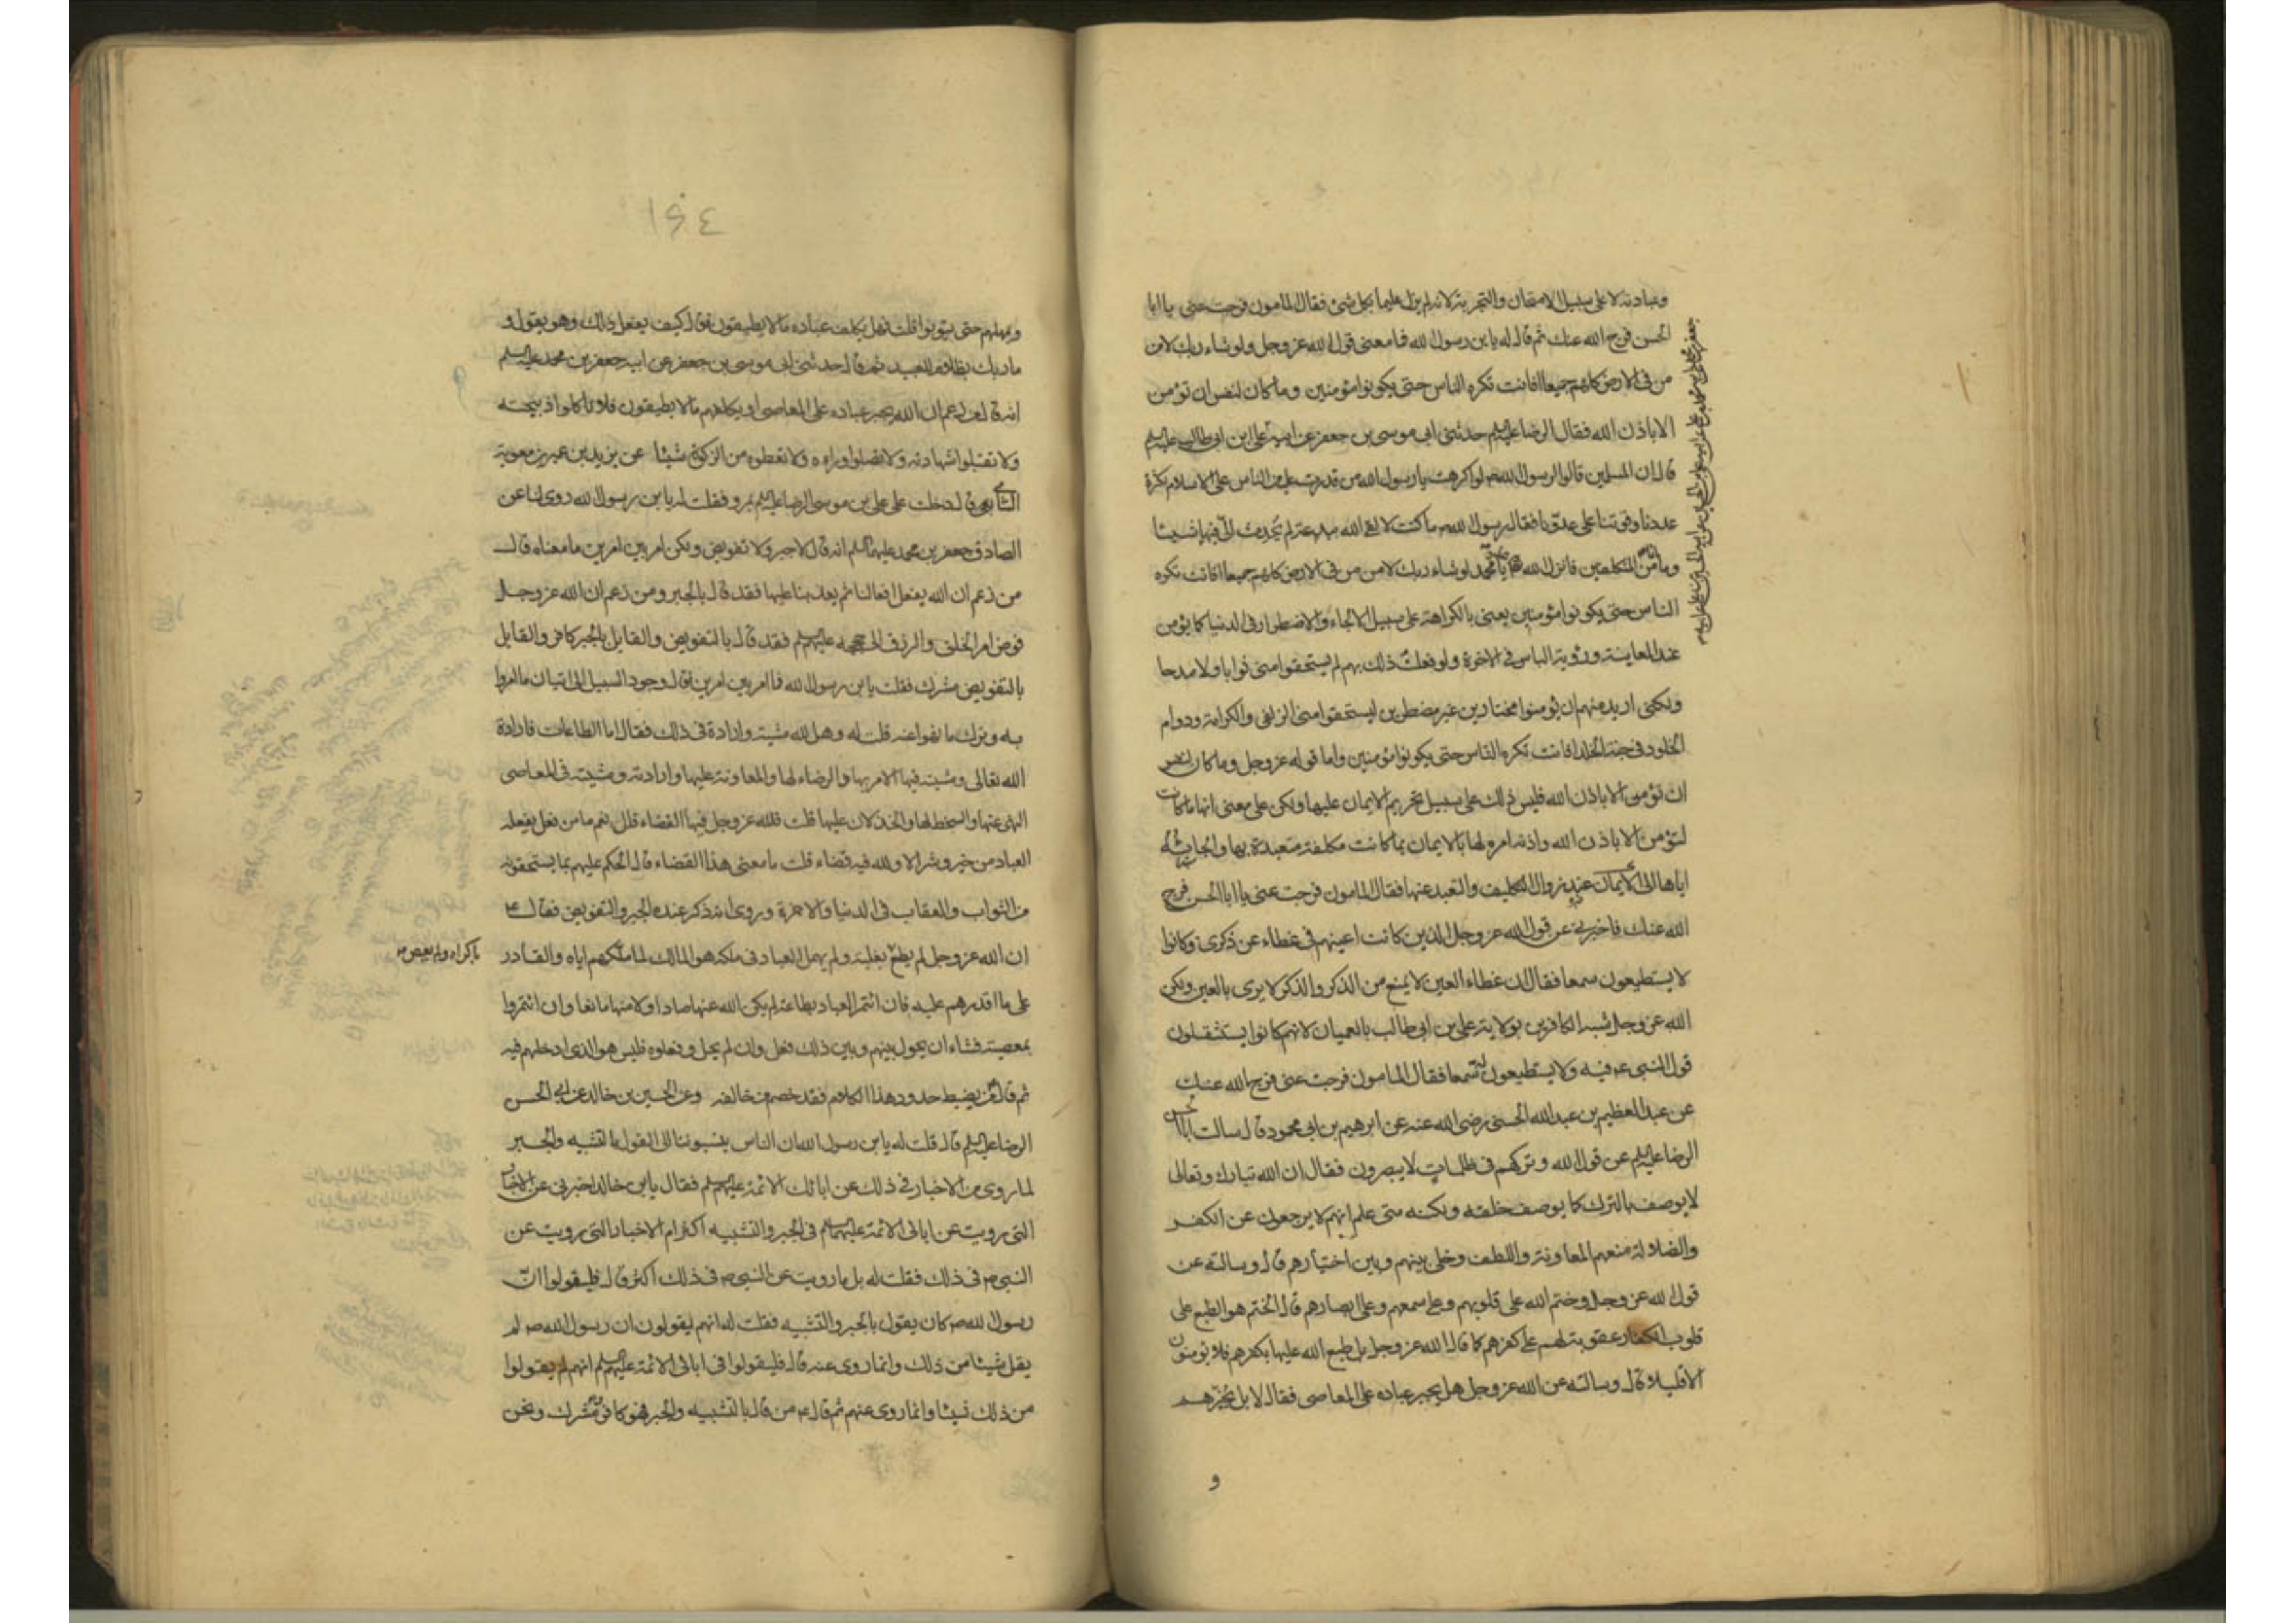 وعبادته لا على سبيل الامتحان والتجربة لانه لم يزل عليما بكل شئ فقال المامون فرجت عنى يا ابا
الحسن فرج الله عنك ثم قال له يابن رسول الله فما معنى قول الله عز وجل ولو شاء ربك لامن
من فى الارض كلهم جميعا افانت تكره الناس حتى يكونوا مؤمنين وما كان لنفس ان تؤمن
الا باذن الله فقال الرضا عليه السلم حدثنى ابى موسى بن جعفر عن ابيه على ابن ابى طالب عليه السلم
جعفر بن محمد عن ابيه محمد بن على عن ابيه على بن الحسين عن ابيه الحسين بن على عن ابيه
قال ان المسلمين قالوا لرسول الله ص لو اكرهت يا رسول الله من قدرت عليه من الناس على الاسلام لكثرة
عددنا وقوتنا على عدونا فقال رسول الله ص ما كنت لالقى الله ببدعة لم يحدث الى فيها شيئا
وما انا من المتكلفين فانزل الله يا محمد لو شاء ربك لامن من فى الارض كلهم جميعا افانت تكره
الناس حتى يكونوا مؤمنين يعنى بالكراهة على سبيل الالجاء والاضطرار فى الدنيا كما يؤمن
عند المعاينة ورؤية الباس فى الاخرة ولو فعلت ذلك بهم لم يستحقوا منى ثوابا ولا مدحا
ولكنى اريد منهم ان يؤمنوا مختارين غير مضطرين ليستحقوا منى الزلفى والكرامة ودوام
الخلود فى جنة الخلد افانت تكره الناس حتى يكونوا مؤمنين واما قوله عز وجل وما كان لنفس
ان تؤمن الا باذن الله فليس ذلك على سبيل تحريم الايمان عليها ولكن على معنى انها ما كانت
لتؤمن الا باذن الله واذنه امره لها بالايمان بما كانت مكلفة متعبدة بها والجاءه
اياها الى الايمان عند زوال التكليف والتعبد عنها فقال المامون فرجت عنى يا ابا الحسن فرج
الله عنك فاخبرنى عن قول الله عز وجل الذين كانت اعينهم فى غطاء عن ذكرى وكانوا
لا يستطيعون سمعا فقال ان غطاء العين لا يمنع من الذكر والذكر لا يرى بالعين ولكن
الله عز وجل شبه الكافرين بولاية على بن ابى طالب بالعميان لانهم كانوا يستثقلون
قول النبى ص فيه ولا يستطيعون له سمعا فقال المامون فرجت عنى فرج الله عنك
عن عبد العظيم بن عبد الله الحسنى رضى الله عنه عن ابرهيم بن ابى محمود قال سالت ابا الحسن
الرضا عليه السلم عن قول الله وتركهم فى ظلمات لا يبصرون فقال ان الله تبارك وتعالى
لا يوصف بالترك كما يوصف خلقه ولكنه متى علم انهم لا يرجعون عن الكفر
والضلالة منعهم المعاونة واللطف وخلى بينهم وبين اختيارهم قال وسالته عن
قول الله عز وجل وختم الله على قلوبهم وعلى سمعهم وعلى ابصارهم قال الختم هو الطبع على
قلوب الكفار عقوبة لهم على كفرهم كما قال الله عز وجل بل طبع الله عليها بكفرهم فلا يؤمنون
الا قليلا قال وسالته عن الله عز وجل هل يجبر عباده على المعاصى فقال لا بل يخيرهم
و
١٤٤
ويمهلهم حتى يتوبوا قلت فهل يكلف عباده ما لا يطيقون فقال كيف يفعل ذلك وهو يقول و
ما ربك بظلام للعبيد ثم قال حدثنى ابى موسى بن جعفر عن ابيه جعفر بن محمد عليه السلم
انه قال من زعم ان الله يجبر عباده على المعاصى او يكلفهم ما لا يطيقون فلا تاكلوا ذبيحته
ولا تقبلوا شهادته ولا تصلوا وراءه ولا تعطوه من الزكوة شيئا عن يزيد بن عمير بن معوية
الشامى قال دخلت على على بن موسى الرضا عليه السلم بمرو فقلت له يا بن رسول الله روى لنا عن
الصادق جعفر بن محمد عليهما السلم انه قال لا جبر ولا تفويض ولكن امر بين امرين ما معناه قال
من زعم ان الله يفعل افعالنا ثم يعذبنا عليها فقد قال بالجبر ومن زعم ان الله عز وجل
فوض امر الخلق والرزق الى حججه عليهم السلم فقد قال بالتفويض والقايل بالجبر كافر والقايل
بالتفويض مشرك فقلت يابن رسول الله فما امر بين امرين قال وجود السبيل الى اتيان ما امروا
به وترك ما نهوا عنه قلت له وهل لله مشية وارادة فى ذلك فقال اما الطاعات فارادة
الله تعالى ومشيته فيها الامر بها والرضاء لها والمعاونة عليها وارادته ومشيته فى المعاصى
النهى عنها والسخط لها والخذلان عليها قلت فلله عز وجل فيها القضاء قال نعم ما من فعل يفعله
العباد من خير وشر الا ولله فيه قضاء قلت ما معنى هذا القضاء قال الحكم عليهم بما يستحقونه
من الثواب والعقاب فى الدنيا والاخرة وروى انه ذكر عنده الجبر والتفويض فقال ع
ان الله عز وجل لم يطع بغلبة ولم يهمل العباد فى ملكه هو المالك لما ملكهم اياه والقادر
باكراه ولم يعص
على ما اقدرهم عليه فان ائتمر العباد بطاعته لم يكن الله عنها صادا ولا منها مانعا وان ائتمروا
بمعصيته فشاء ان يحول بينهم وبين ذلك فعل وان لم يحل وفعلوه فليس هو الذى ادخلهم فيه
ثم قال ع من يضبط حدود هذا الكلام فقد خصم من خالفه وعن الحسين بن خالد عن ابى الحسن
الرضا عليه السلم قال قلت له يابن رسول الله ان الناس ينسبوننا الى القول بالتشبيه والجبر
لما روى من الاخبار فى ذلك عن ابائك الائمة عليهم السلم فقال يا بن خالد اخبرنى عن الاخبار
التى رويت عن ابائى الائمة عليهم السلم فى الجبر والتشبيه اكثر ام الاخبار التى رويت عن
النبى ص فى ذلك فقلت له بل ما رويت عن النبى ص فى ذلك اكثر قال فليقولوا ان
رسول الله ص كان يقول بالجبر والتشبيه فقلت له انهم يقولون ان رسول الله ص لم
يقل شيئا من ذلك وانما روى عنه قال فليقولوا فى ابائى الائمة عليهم السلم انهم لم يقولوا
من ذلك شيئا وانما روى عنهم ثم قال ع من قال بالتشبيه والجبر فهو كافر مشرك ونحن